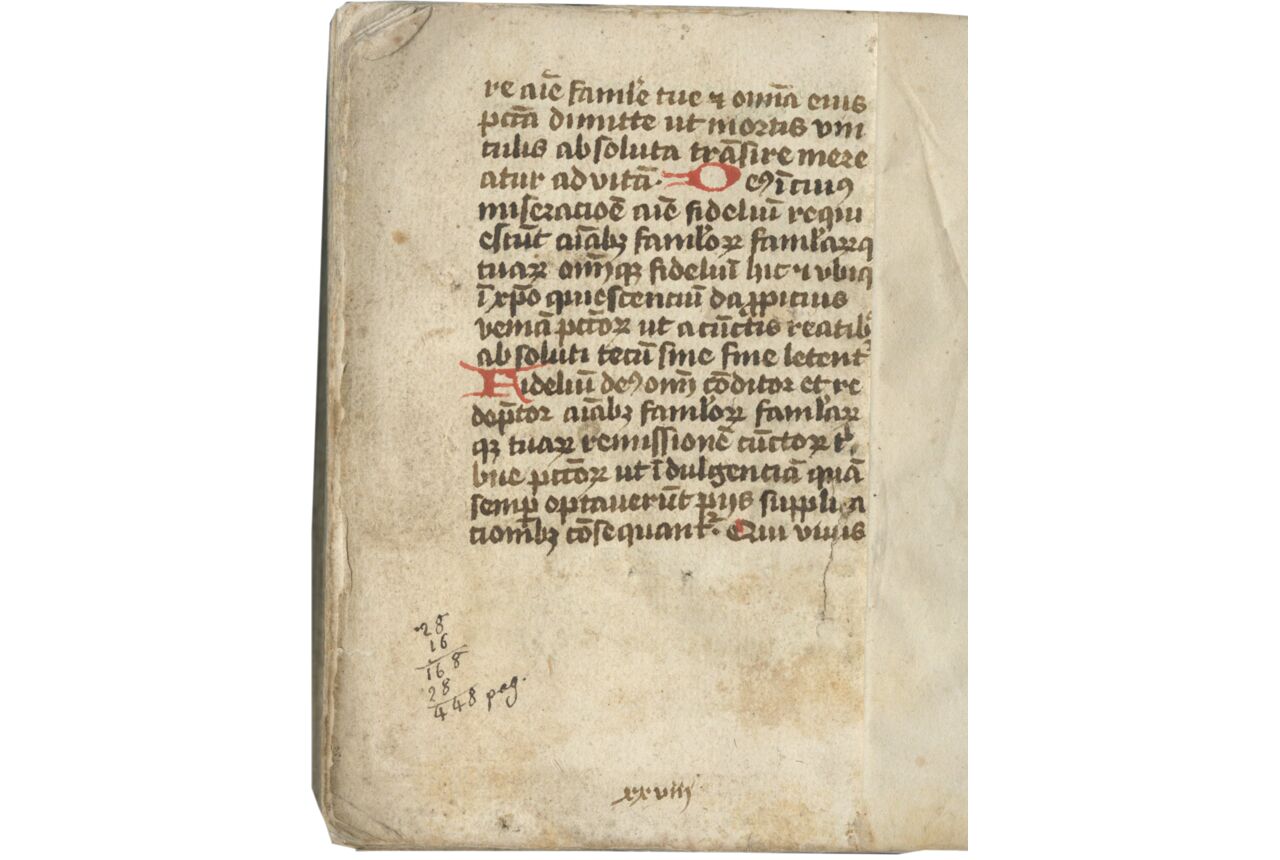 re aīe famľe tue ⁊ om̄ia eius
pctā dimitte ut mortis vin
culis absoluta trāsire mere
atur ad vitā. Deꝰ ī cuiꝰ
miseracioē aīe fideliū requi
escūt aīabꝫ famľoꝝ famľarꝝq
tuaꝝ om̄iqꝫ fideliū hic ⁊ vbiq
ī xp̄o quiescenciū da ꝓpicius
veniā pctōꝝ ut a cūctis reatibꝰ
absoluti tecū sine fine letentᷣ
Fideliū deꝰ om̄i cōditor et re
dēptor aīabꝫ famľoꝝ famľaꝝ
qꝫ tuaꝝ remissionē cūctoꝝ tⁱ
bue pctōꝝ ut īdulgenciā quā
semꝑ optauerūt pijs supplica
cionibꝫ cōsequantᷣ. Qui viuis
28
16
168
28
448 pag.
xxviij